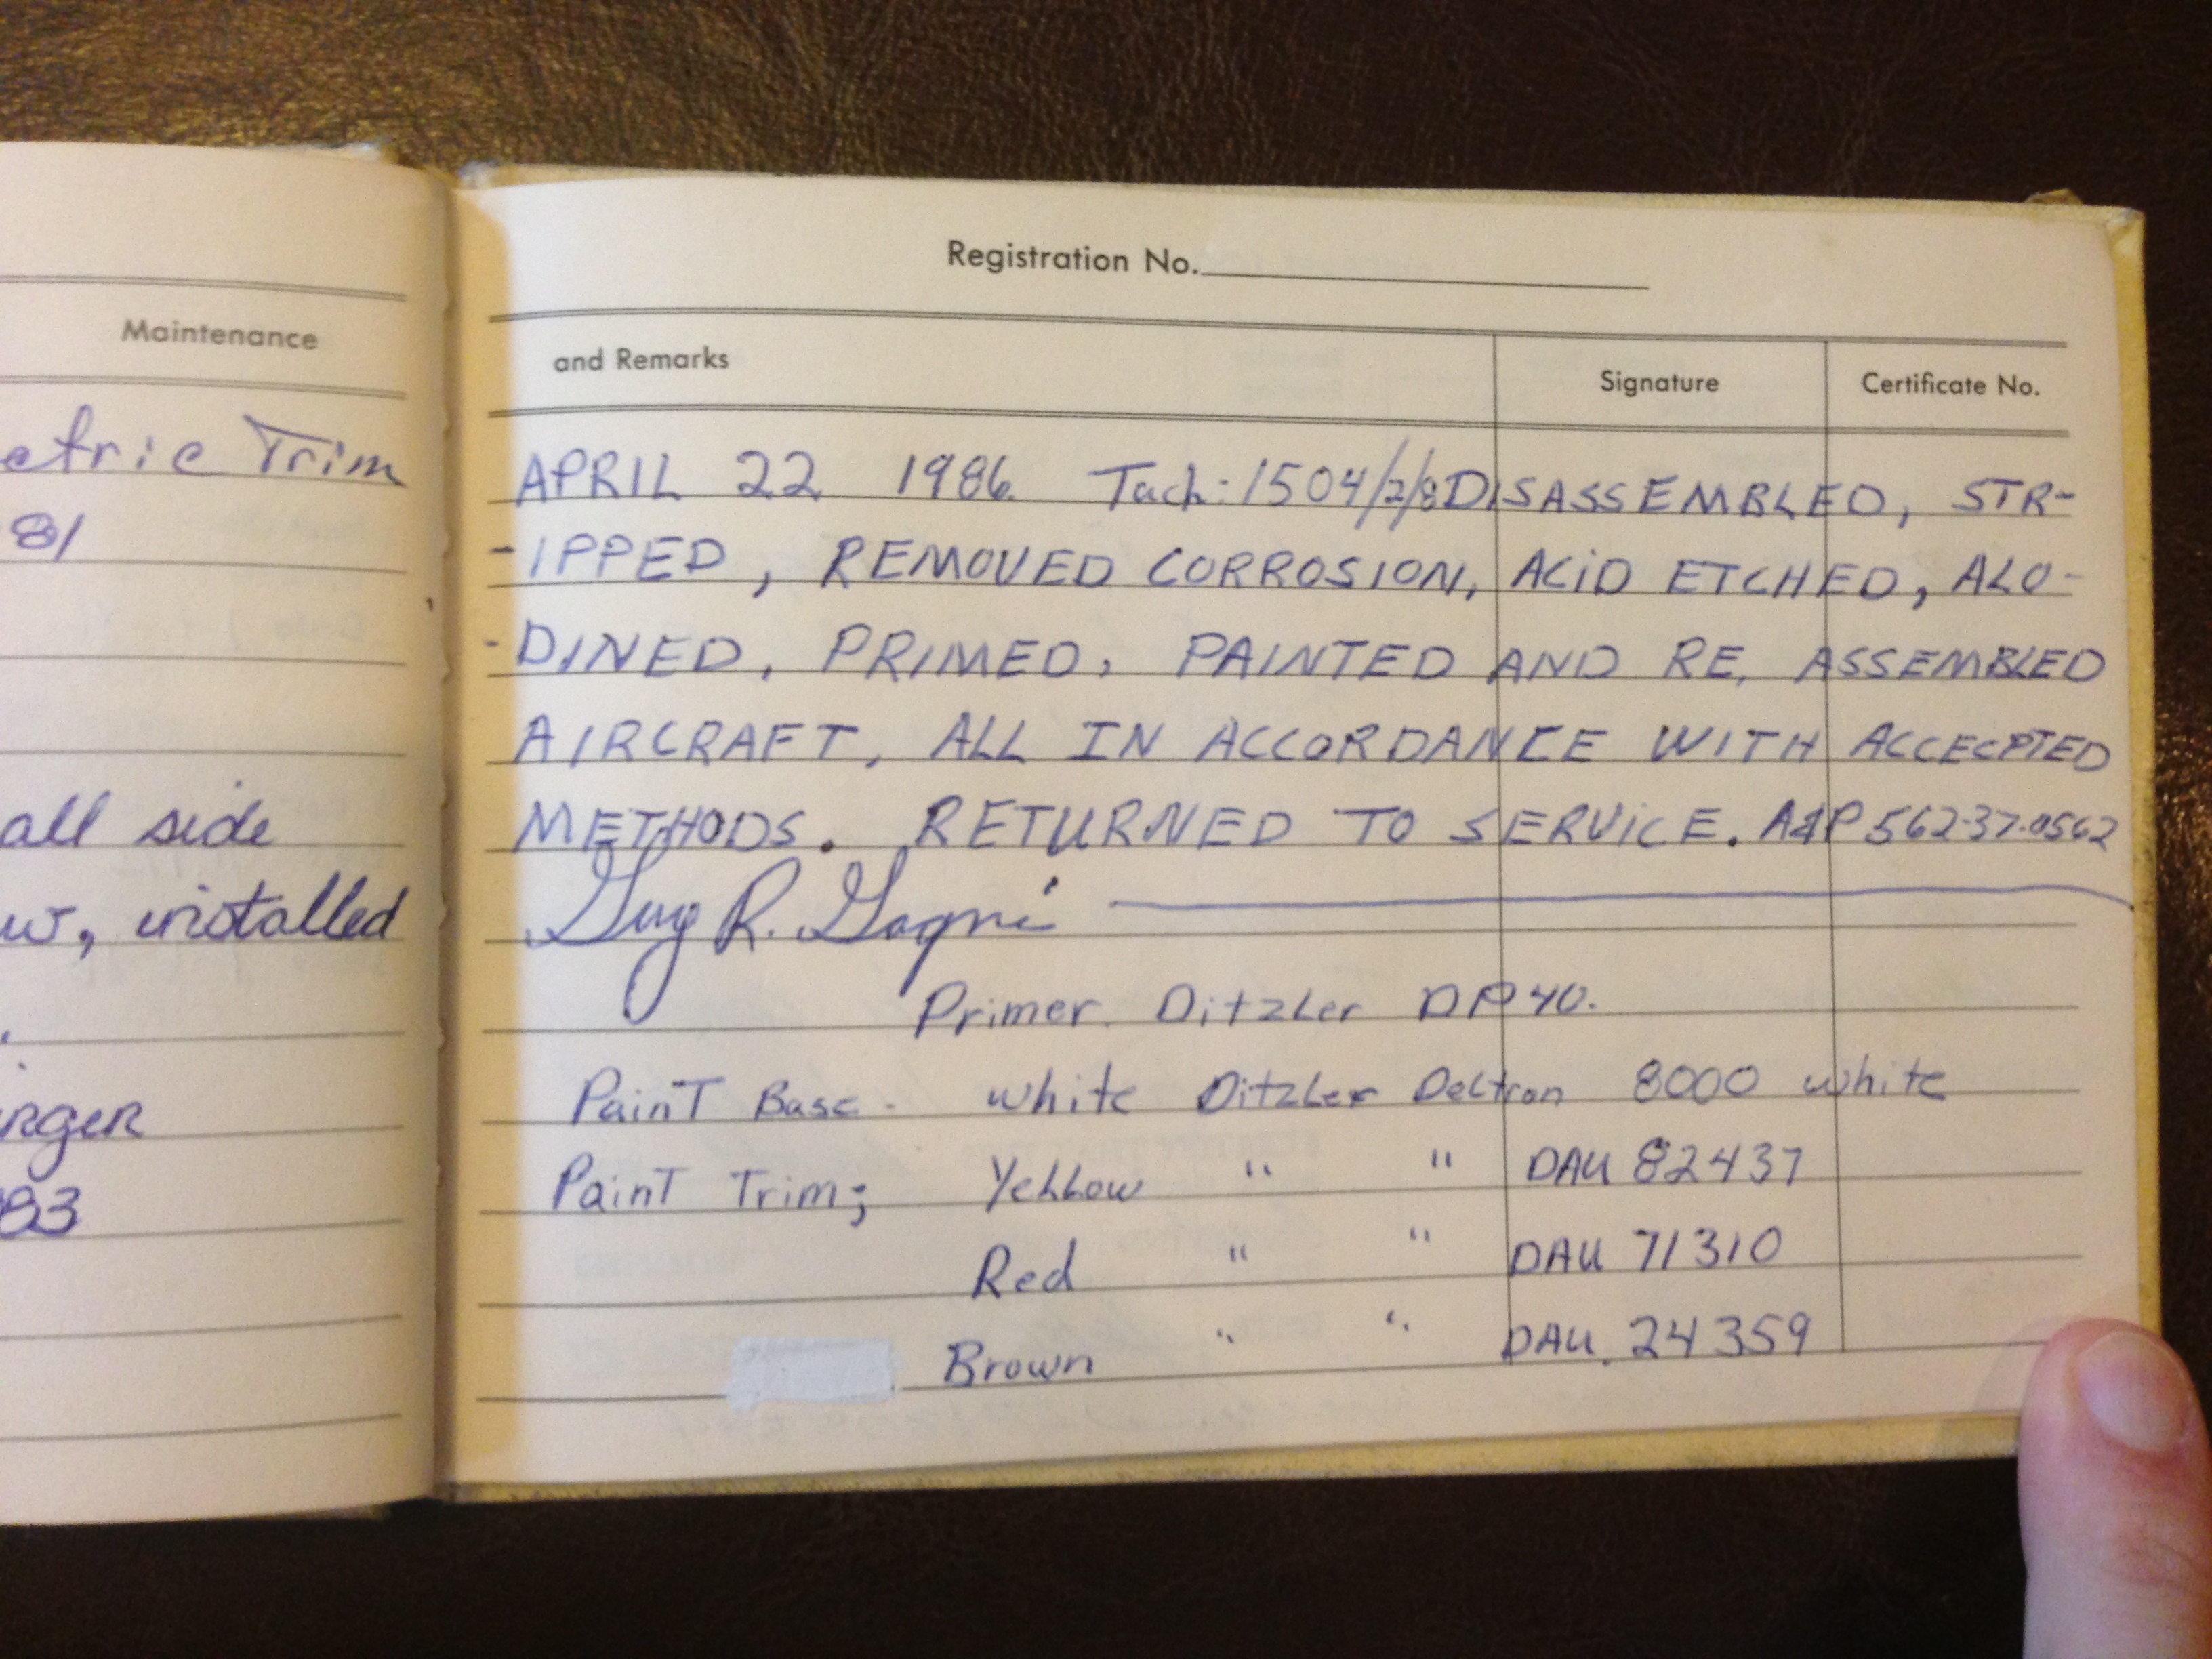 Maintenance
etric Trim
81
all side
w, installed
rger
83
Registration No.
and Remarks Signature Certificate No.
APRIL 22 1986 Tach: 1504/2/8 DISASSEMBLED, STR-
-IPPED, REMOVED CORROSION, ACID ETCHED, ALO-
-DINED, PRIMED, PAINTED AND RE. ASSEMBLED
AIRCRAFT, ALL IN ACCORDANCE WITH ACCECPTED
METHODS. RETURNED TO SERVICE. A&P 562-37-0562
Guy R. Gagné
Primer Ditzler DP40.
Paint Base. white Ditzler Deltron 8000 white
Paint Trim; Yellow " " DAU 82437
Red " " DAU 71310
Brown " " DAU. 24359